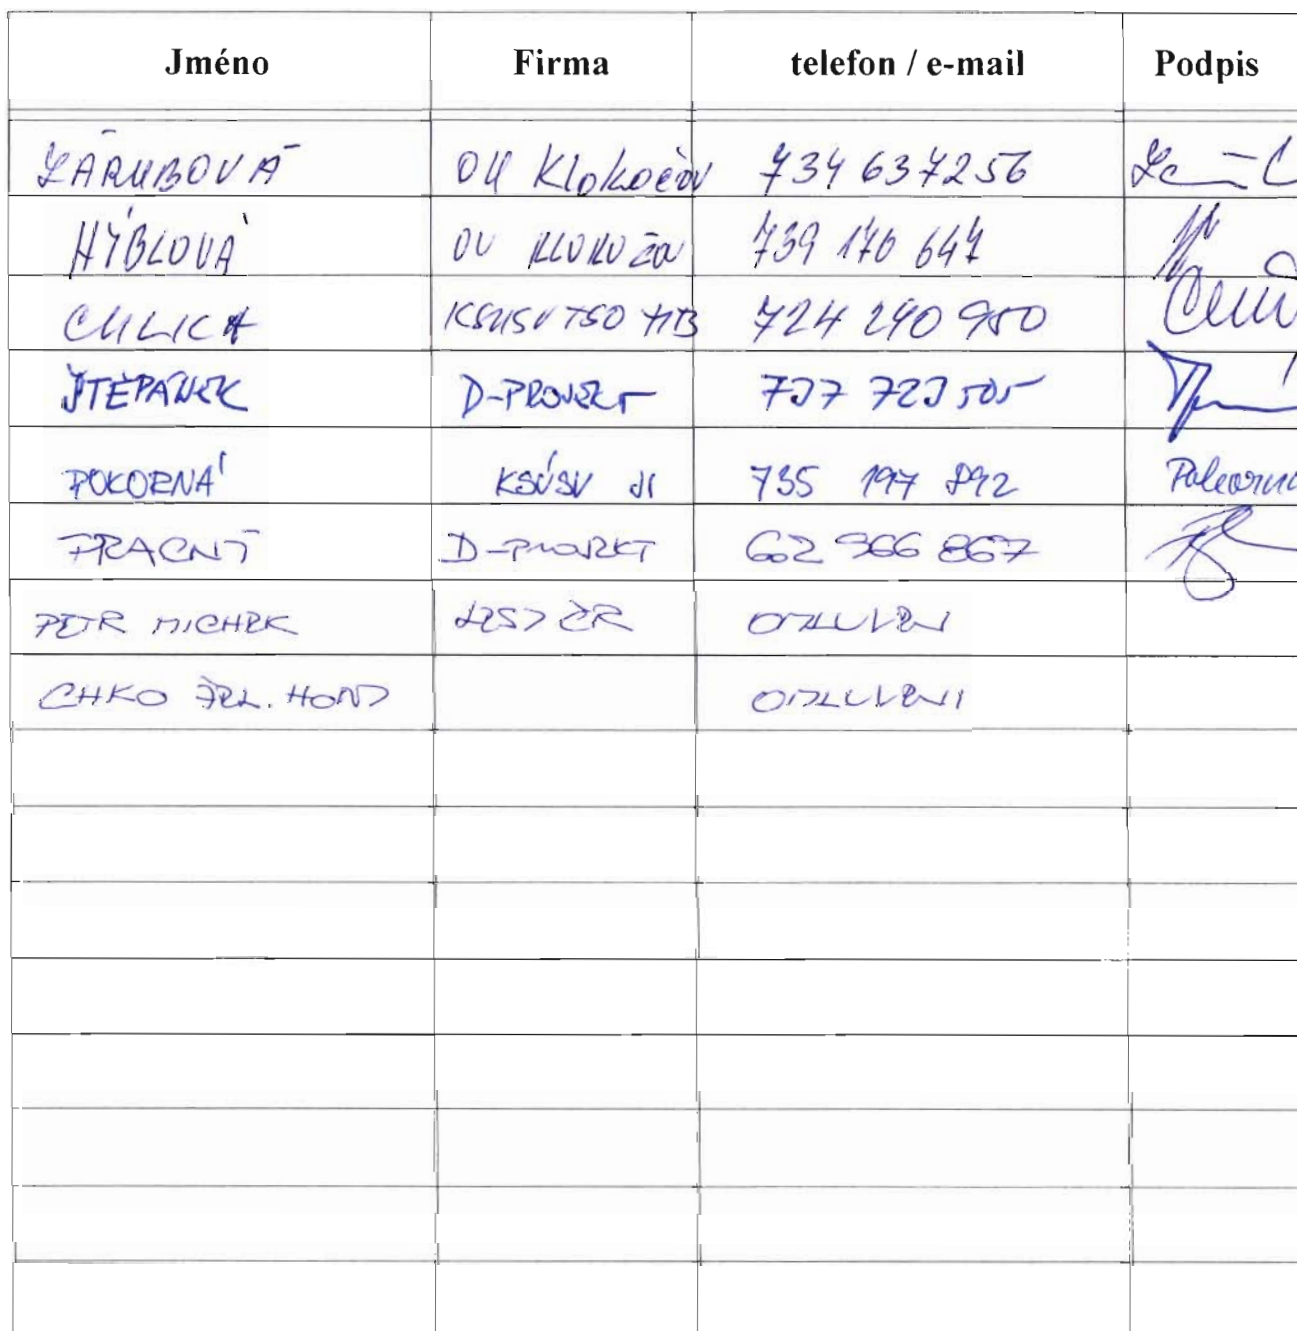 Jméno Firma telefon / e-mail Podpis
ZÁRUBOVÁ OÚ Klokočov 734 637256
HÝBLOVÁ OÚ KLOKOČOV 739 170 647
CHLICA KSÚSV TSO HB 724 240 950
ŠTĚPÁNEK D-PROJEKT 737 723 505
POKORNÁ KSÚSV JI 735 197 892 Pokorná
PRACNÝ D-PROJEKT 602 966 867
PETR MICHEK LESY ČR OMLUVENI
CHKO ŽEL. HORY OMLUVENI